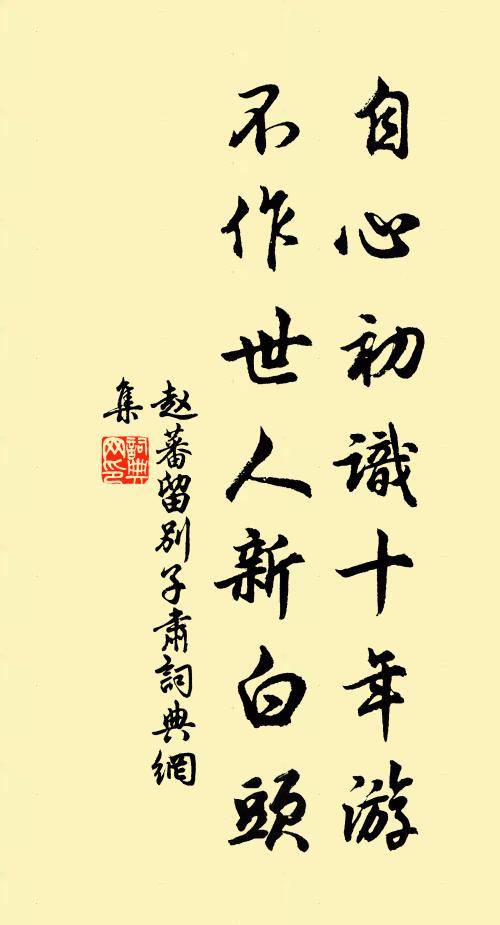 自心初識十年游
不作世人新白頭
赵蕃留别子肅詞典網
集
詞典
网印